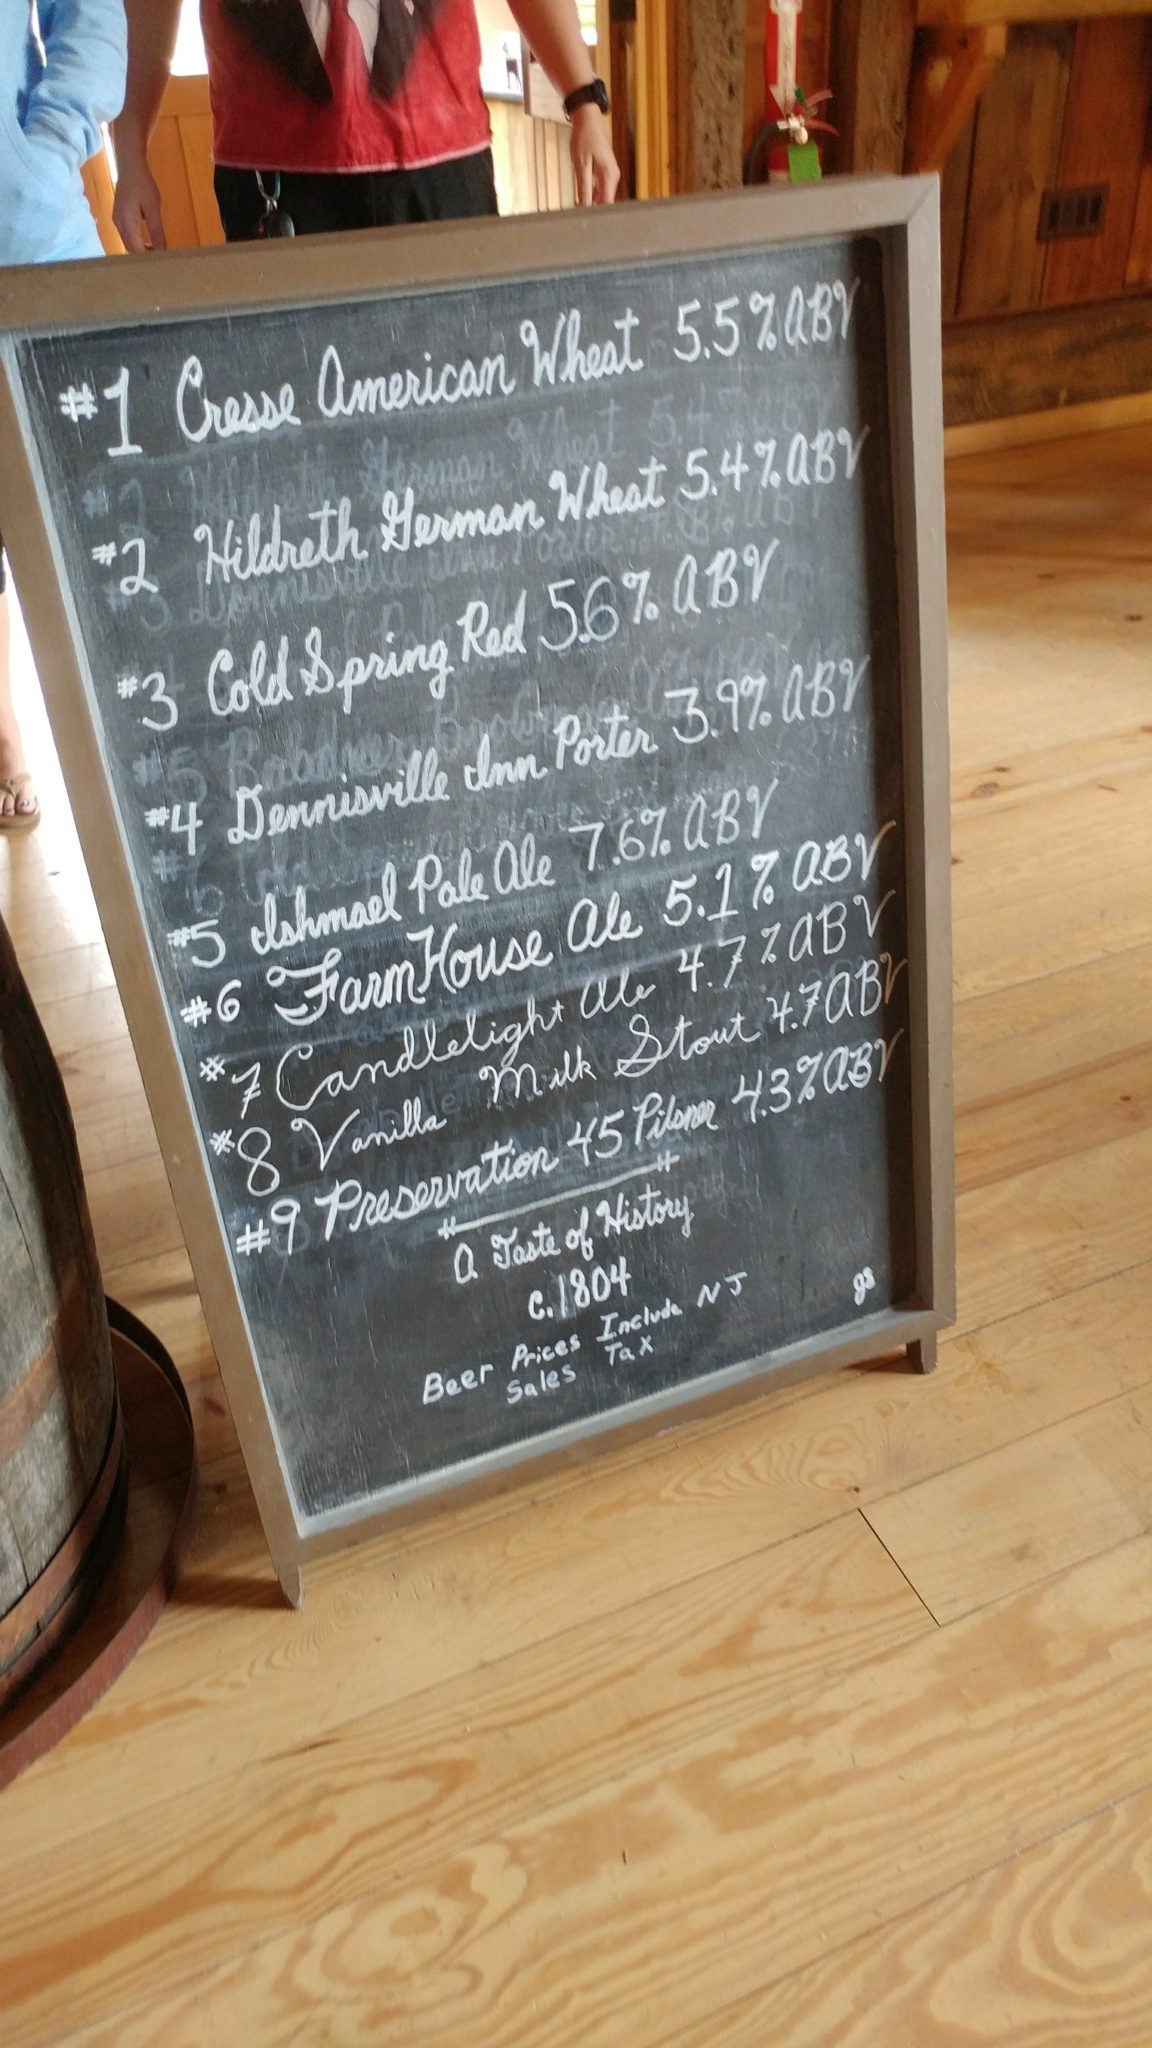 #1 Cresse American Wheat 5.5% ABV
#2 Hildreth German Wheat 5.4% ABV
#3 Cold Spring Red 5.6% ABV
#4 Dennisville Inn Porter 3.9% ABV
#5 Ishmael Pale Ale 7.6% ABV
#6 FarmHouse Ale 5.1% ABV
#7 Candlelight Ale 4.7% ABV
#8 Vanilla Milk Stout 4.7 ABV
#9 Preservation 45 Pilsner 4.3% ABV
A Taste of History
c.1804
Beer Prices Include NJ
Sales Tax
gs